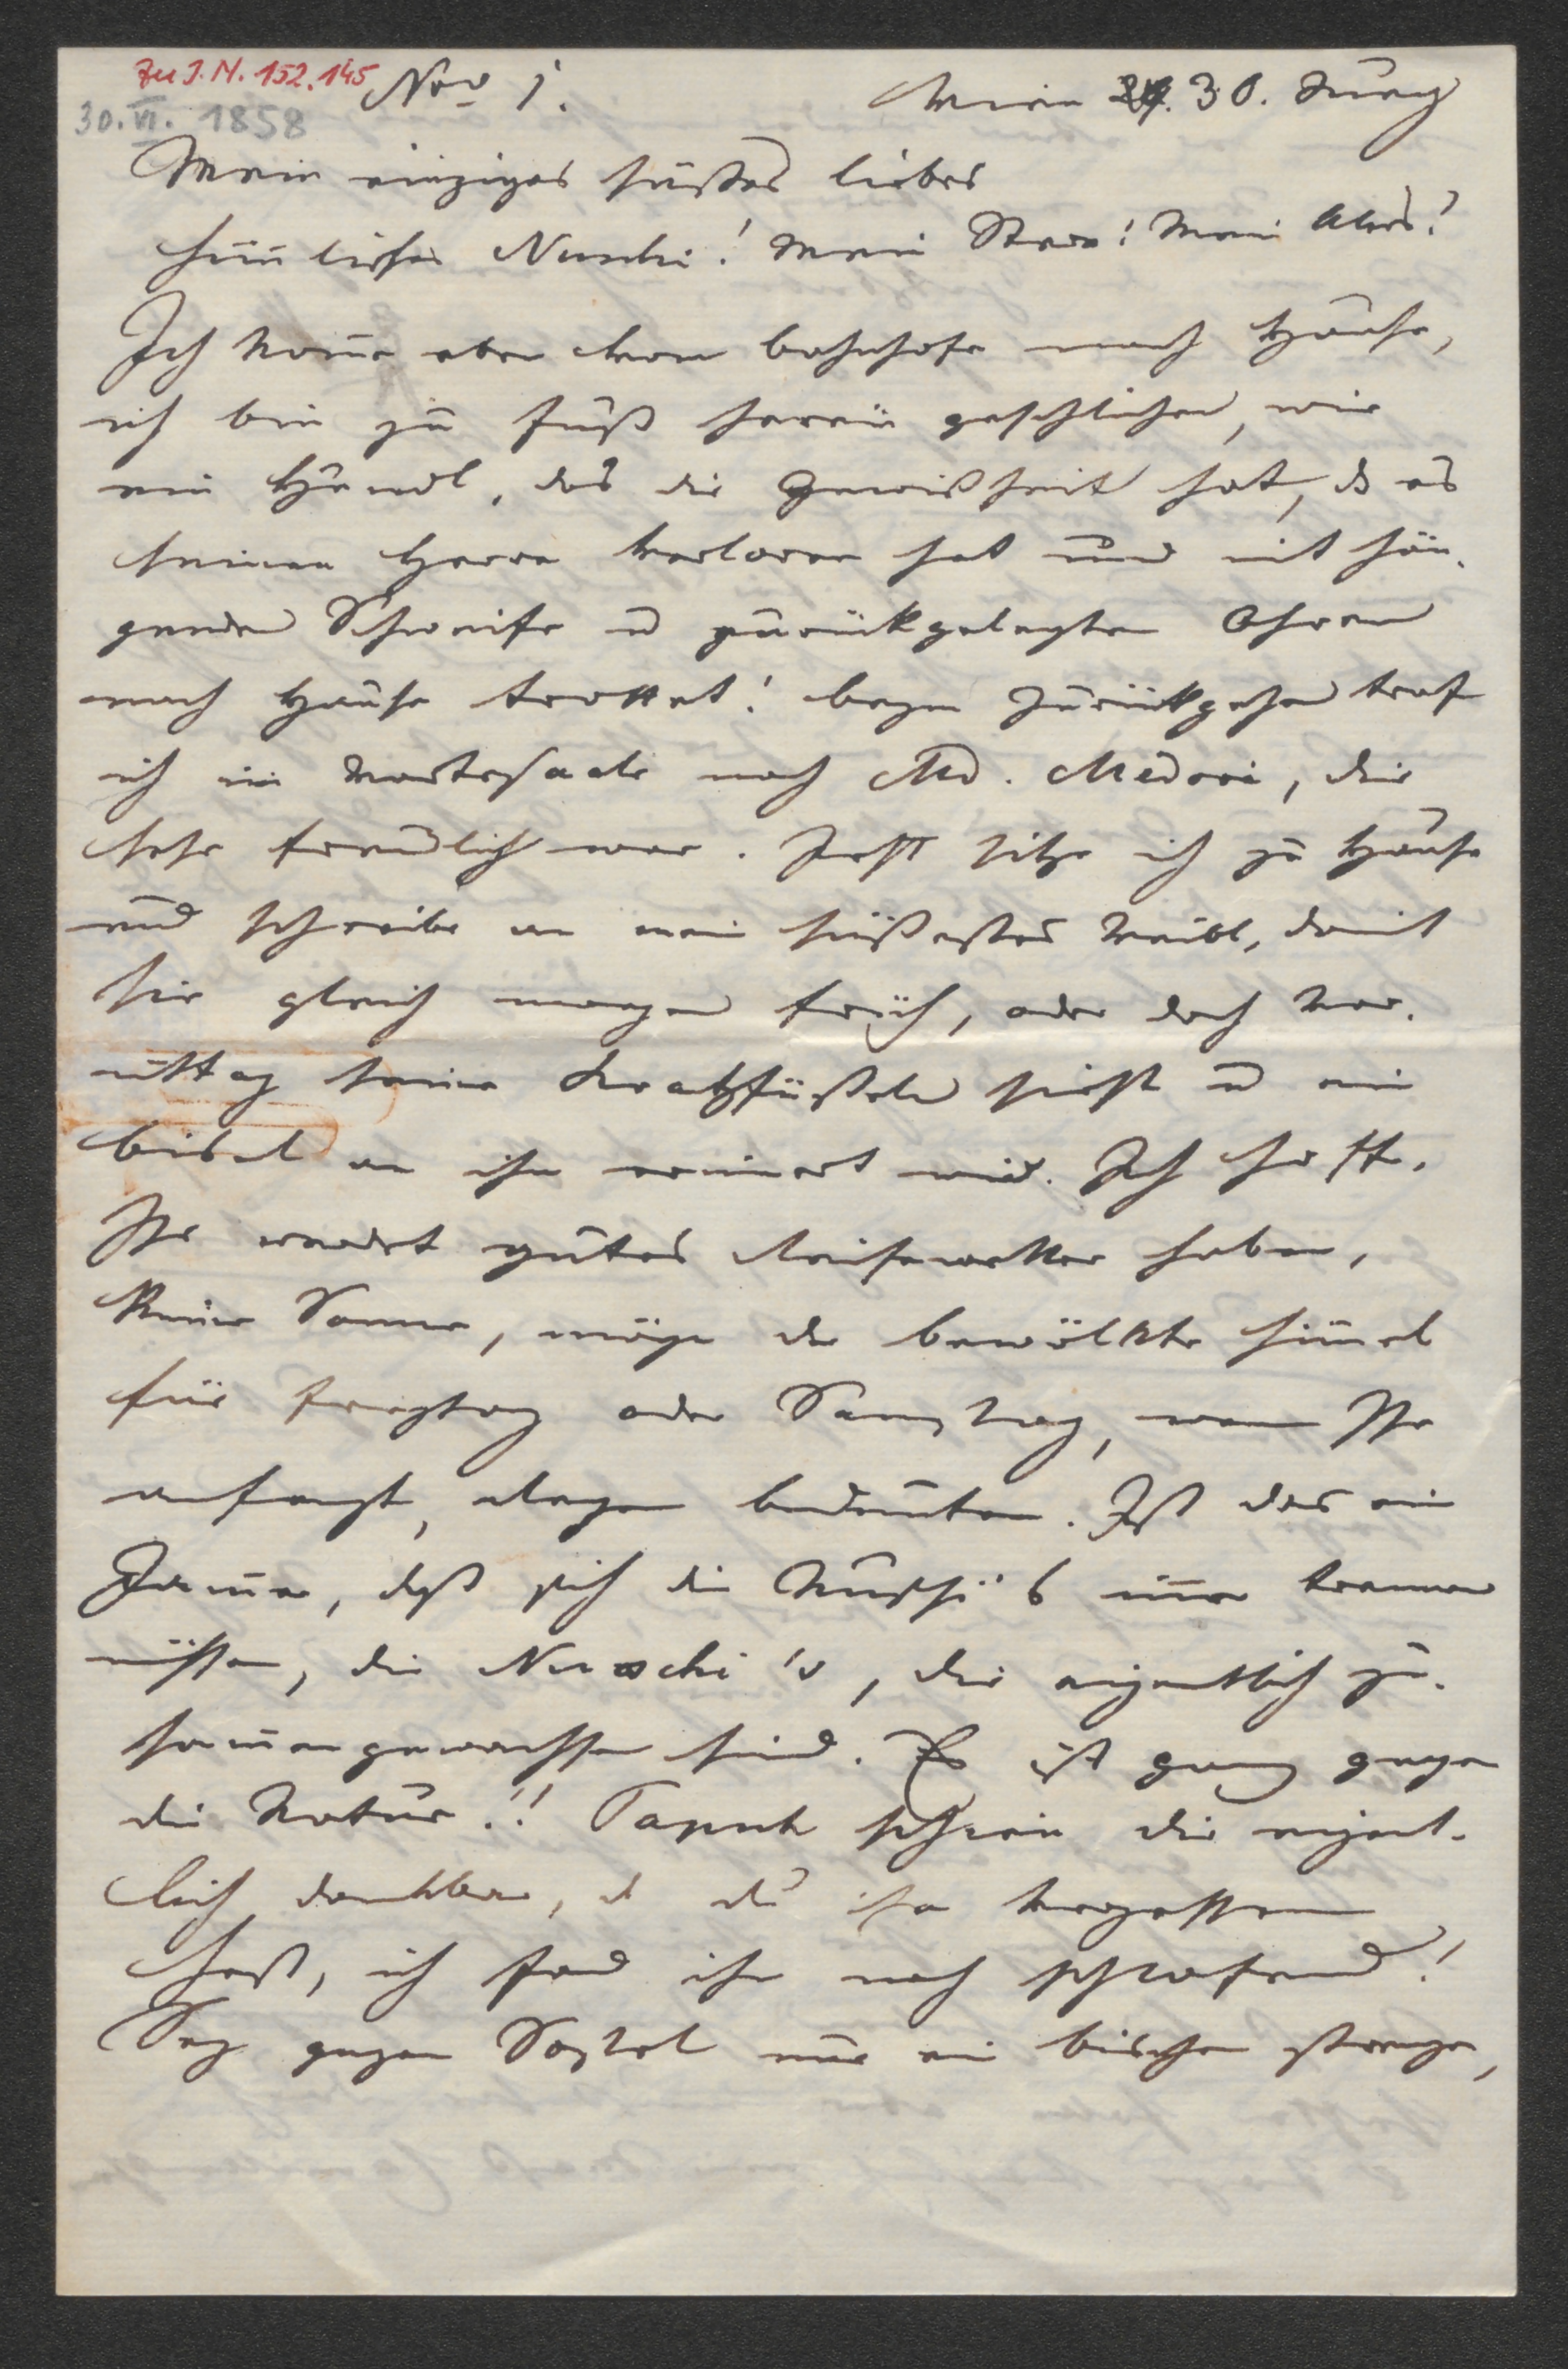 Zu J.N. 152.145
30.VI. 1858
Nro 1.
Wien 30. Juny
Mein einziges süßes liebes
him̅lisches Nuschi! Mein Stern! Mein Alles!
Ich kom̅e eben vom Bahnhofe nach Hause,
ich bin zu Fuß herein geschlichen, wie
ein Hundl, das die Gewißheit hat, dß es
seinen Herrn verloren hat und mit hän-
genden Schweife u zurückgelegten Ohren
nach Hause trottet! Beym Zurückgehen traf
ich im Wartesaale noch Md. Medori, die
sehr freundlich war. Jetzt sitze ich zu Hause
und schreibe an mein süßestes Weibl, damit
sie gleich morgen früh, oder doch Vor-
mittag seine Kratzfüßeln sieht u ein
bissel an ihn erinert wird. Ich hoffe,
Ihr werdet gutes Reisewetter haben,
keine Sonne, möge der bewölkte Him̅el
für Freytag oder Samstag, wenn Ihr
anfangt, Regen bedeuten. Ist das ein
Jam̅er, daß sich die Nuschi's im̅er trennen
müssen, die Nuschi's, die eigentlich zu-
sam̅engewachsen sind. Es ist ganz gegen
die Natur!! schien dir eigent-
lich dankbar, dß du ihn vergessen
hast, ich fand ihn noch schlafend!
Sey gegen nur ein bischen strenge,